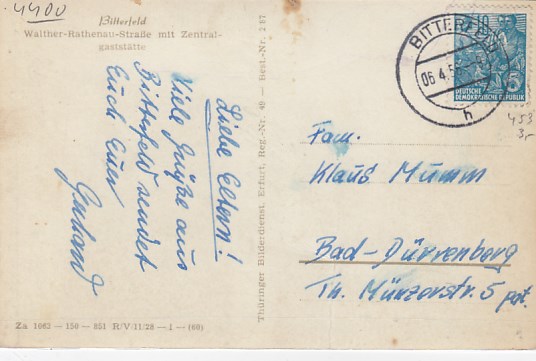 4400
Bitterfeld
Walther-Rathenau-Straße mit Zentral-
gaststätte
Liebe Eltern!
Viele Grüße aus
Bitterfeld sendet
Euch Euer
Gerhard
Za 1062 - 150 - 851 R/V/11/28 - 1 - (60)
Thüringer Bilderdienst, Erfurt, Reg.-Nr. 49 — Best.-Nr. 2/87
BITTERFELD
06.4.5
h
DEUTSCHE
DEMOKRATISCHE REPUBLIK
5
453
3,-
Fam.
Klaus Mumm
Bad-Dürrenberg
Th. Münzerstr. 5 pat.